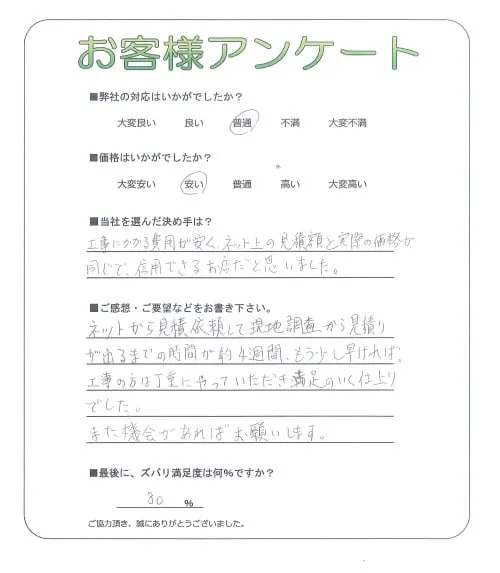 お客様アンケート
■弊社の対応はいかがでしたか？
大変良い 良い 普通 不満 大変不満
■価格はいかがでしたか？
大変安い 安い 普通 高い 大変高い
■当社を選んだ決め手は？
工事にかかる費用が安く、ネット上の見積額と実際の価格が
同じで、信用できるお店だと思いました。
■ご感想・ご要望などをお書き下さい。
ネットから見積依頼して現地調査から見積り
が出るまでの時間が約4週間、もう少し早ければ。
工事の方は丁重にやっていただき満足のいく仕上り
でした。
また機会があればお願いします。
■最後に、ズバリ満足度は何%ですか？
80 %
ご協力頂き、誠にありがとうございました。